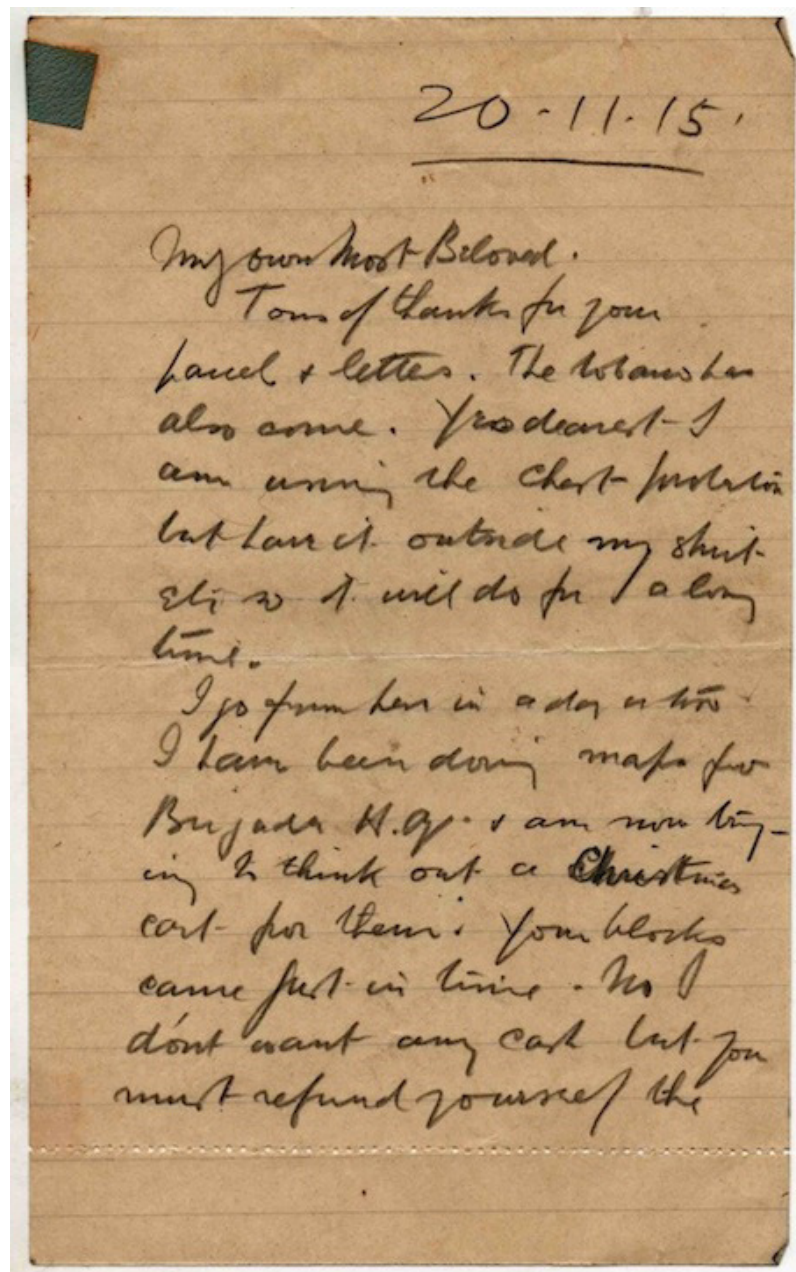 20-11-15.
My own Most Beloved.
Tons of thanks for your
parcel & letters. The tobacco has
also come. Yes dearest I
am using the chest protector
but have it outside my shirt
etc so it will do for a long
time.
I go from here in a day or two.
I have been doing maps for
Brigade H.Q. & am now try-
ing to think out a Christmas
card for them. Your blocks
came just in time. No I
don't want any cash but you
must refund yourself the